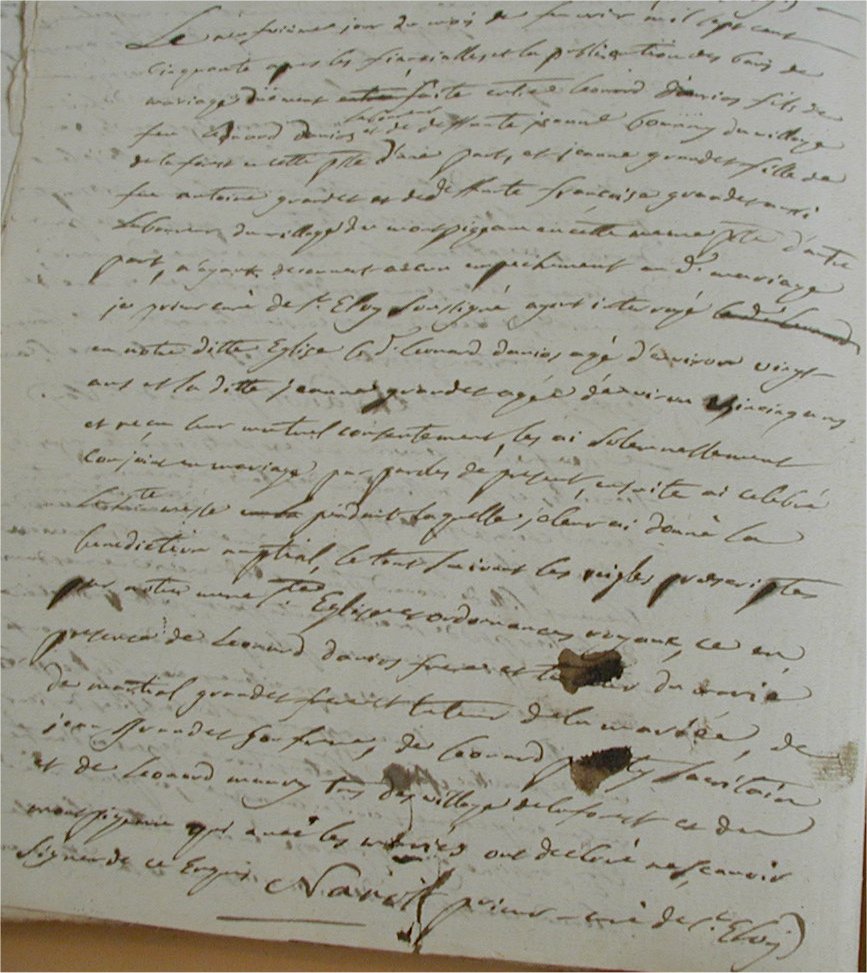 Le neufvième jour du mois de fevrier mil sept cent
cinquante apres les fiancialles et la publication des bans de
mariage dûement faite entre Leonard danios fils de
feu Leonard danios et de deffunte jeanne bonnny du village
de la forest en cette psse d'une part, et jeanne grandet fille de
feu antoine grandet et de deffunte françoise grandet aussi
du village du montpigeau en cette meme psse d'autre
part, n'ayant decouvert aucun empechement au dt mariage
je prieur curé de st Eloy soussigné ayant interrogé le dt Leonard
en notre ditte Eglise le dt Leonard danios agé d'environ vingt
ans et la ditte jeanne grandet agée d'environ vingt cinq ans
et reçu leur mutuel consentement, les ai solemnellement
conjoint en mariage par paroles de présent, ensuite ai celebré
la sainte messe pendant laquelle je leur ai donné la
benediction nuptial, le tout suivant les reigles prescriptes
par notre mere ste Eglise et ordonnances royaux, ce en
presence de Leonard danios frere et du marié
de martial grandet frere et tuteur de la mariée, de
jean grandet son frere, de Leonard sacristain
et de Leonard maury tous des village de la forest et du
montpigeau qui avec les mariés ont declaré ne scavoir
signer de ce Enquis
Navit prieur - curé de st Eloy